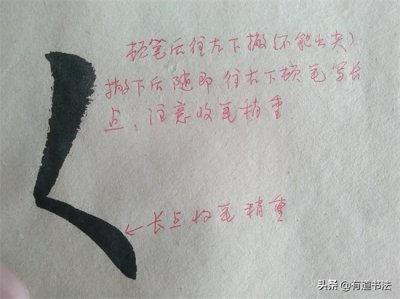 顿笔后往左下撇(不能出尖)
撇下后随即往右下顿笔写长
点,注意收笔稍重
←长点收笔稍重
头条@有道书法